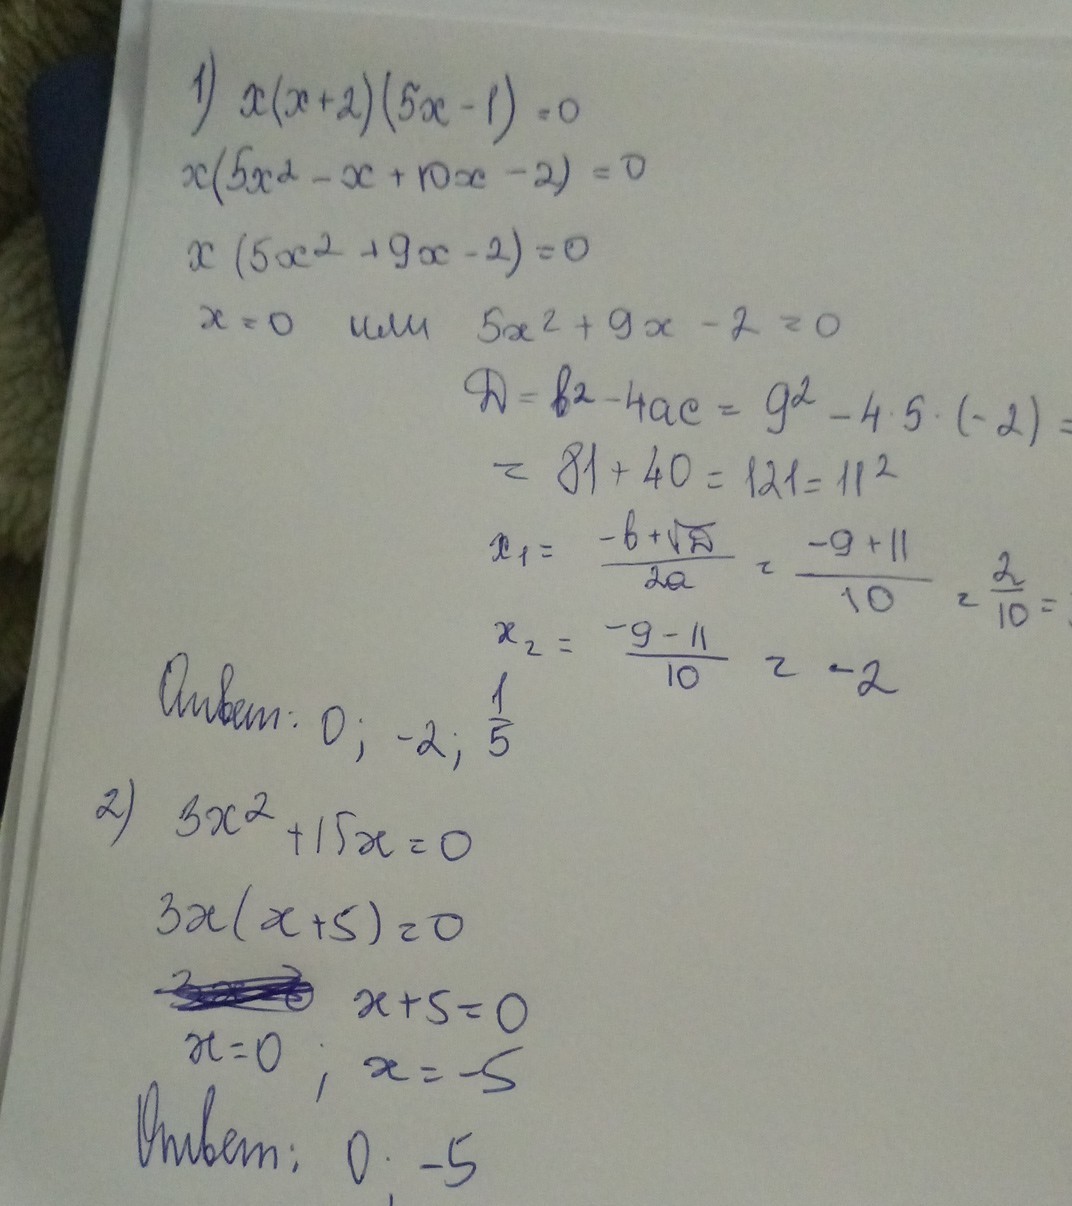 1) x(x+2)(5x-1)=0
x(5x² - x + 10x - 2) = 0
x(5x² + 9x - 2) = 0
x = 0 или 5x² + 9x - 2 = 0
D = b² - 4ac = 9² - 4·5·(-2) =
= 81 + 40 = 121 = 11²
x₁ = (-b+√D)/(2a) = (-9+11)/10 = 2/10 =
x₂ = (-9-11)/10 = -2
Ответ: 0; -2; 1/5
2) 3x² + 15x = 0
3x(x+5) = 0
x+5 = 0
x = 0 ; x = -5
Ответ: 0; -5